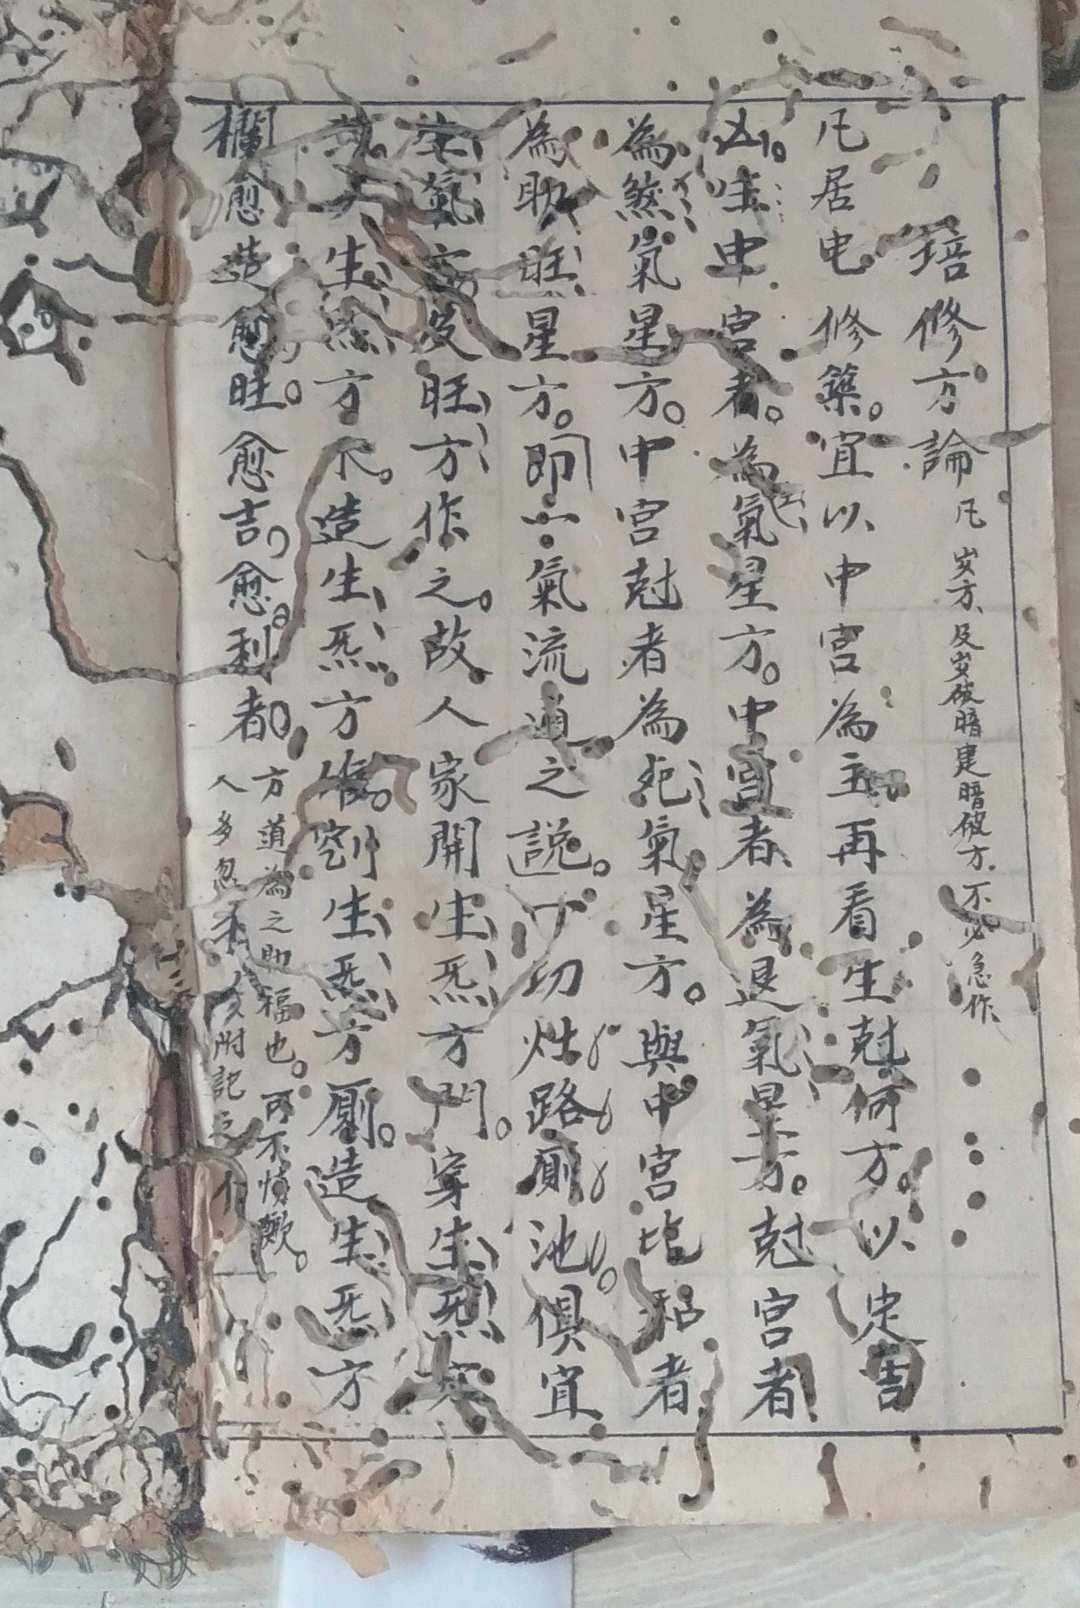 培修方論 凡 安方、及安破暗建暗破方、不必急作、
凡居屯修築。宜以中宮為主再看生尅何方。以定吉
凶。生中宮者。為氣星方。中宮者為退氣星方。尅宮者
為煞氣星方。中宮尅者為死氣星方。與中宮比和者
為助旺星方。即一氣流通之說。一切灶路廁池。俱宜
生氣方及旺方作之。故人家開生炁方門。穿生炁方
生炁方 造生炁方 劉生炁方廁。造生炁方
欄愈造愈旺。愈吉。愈利者
方道為之助福也。可不慎歟。
人多忽 附記